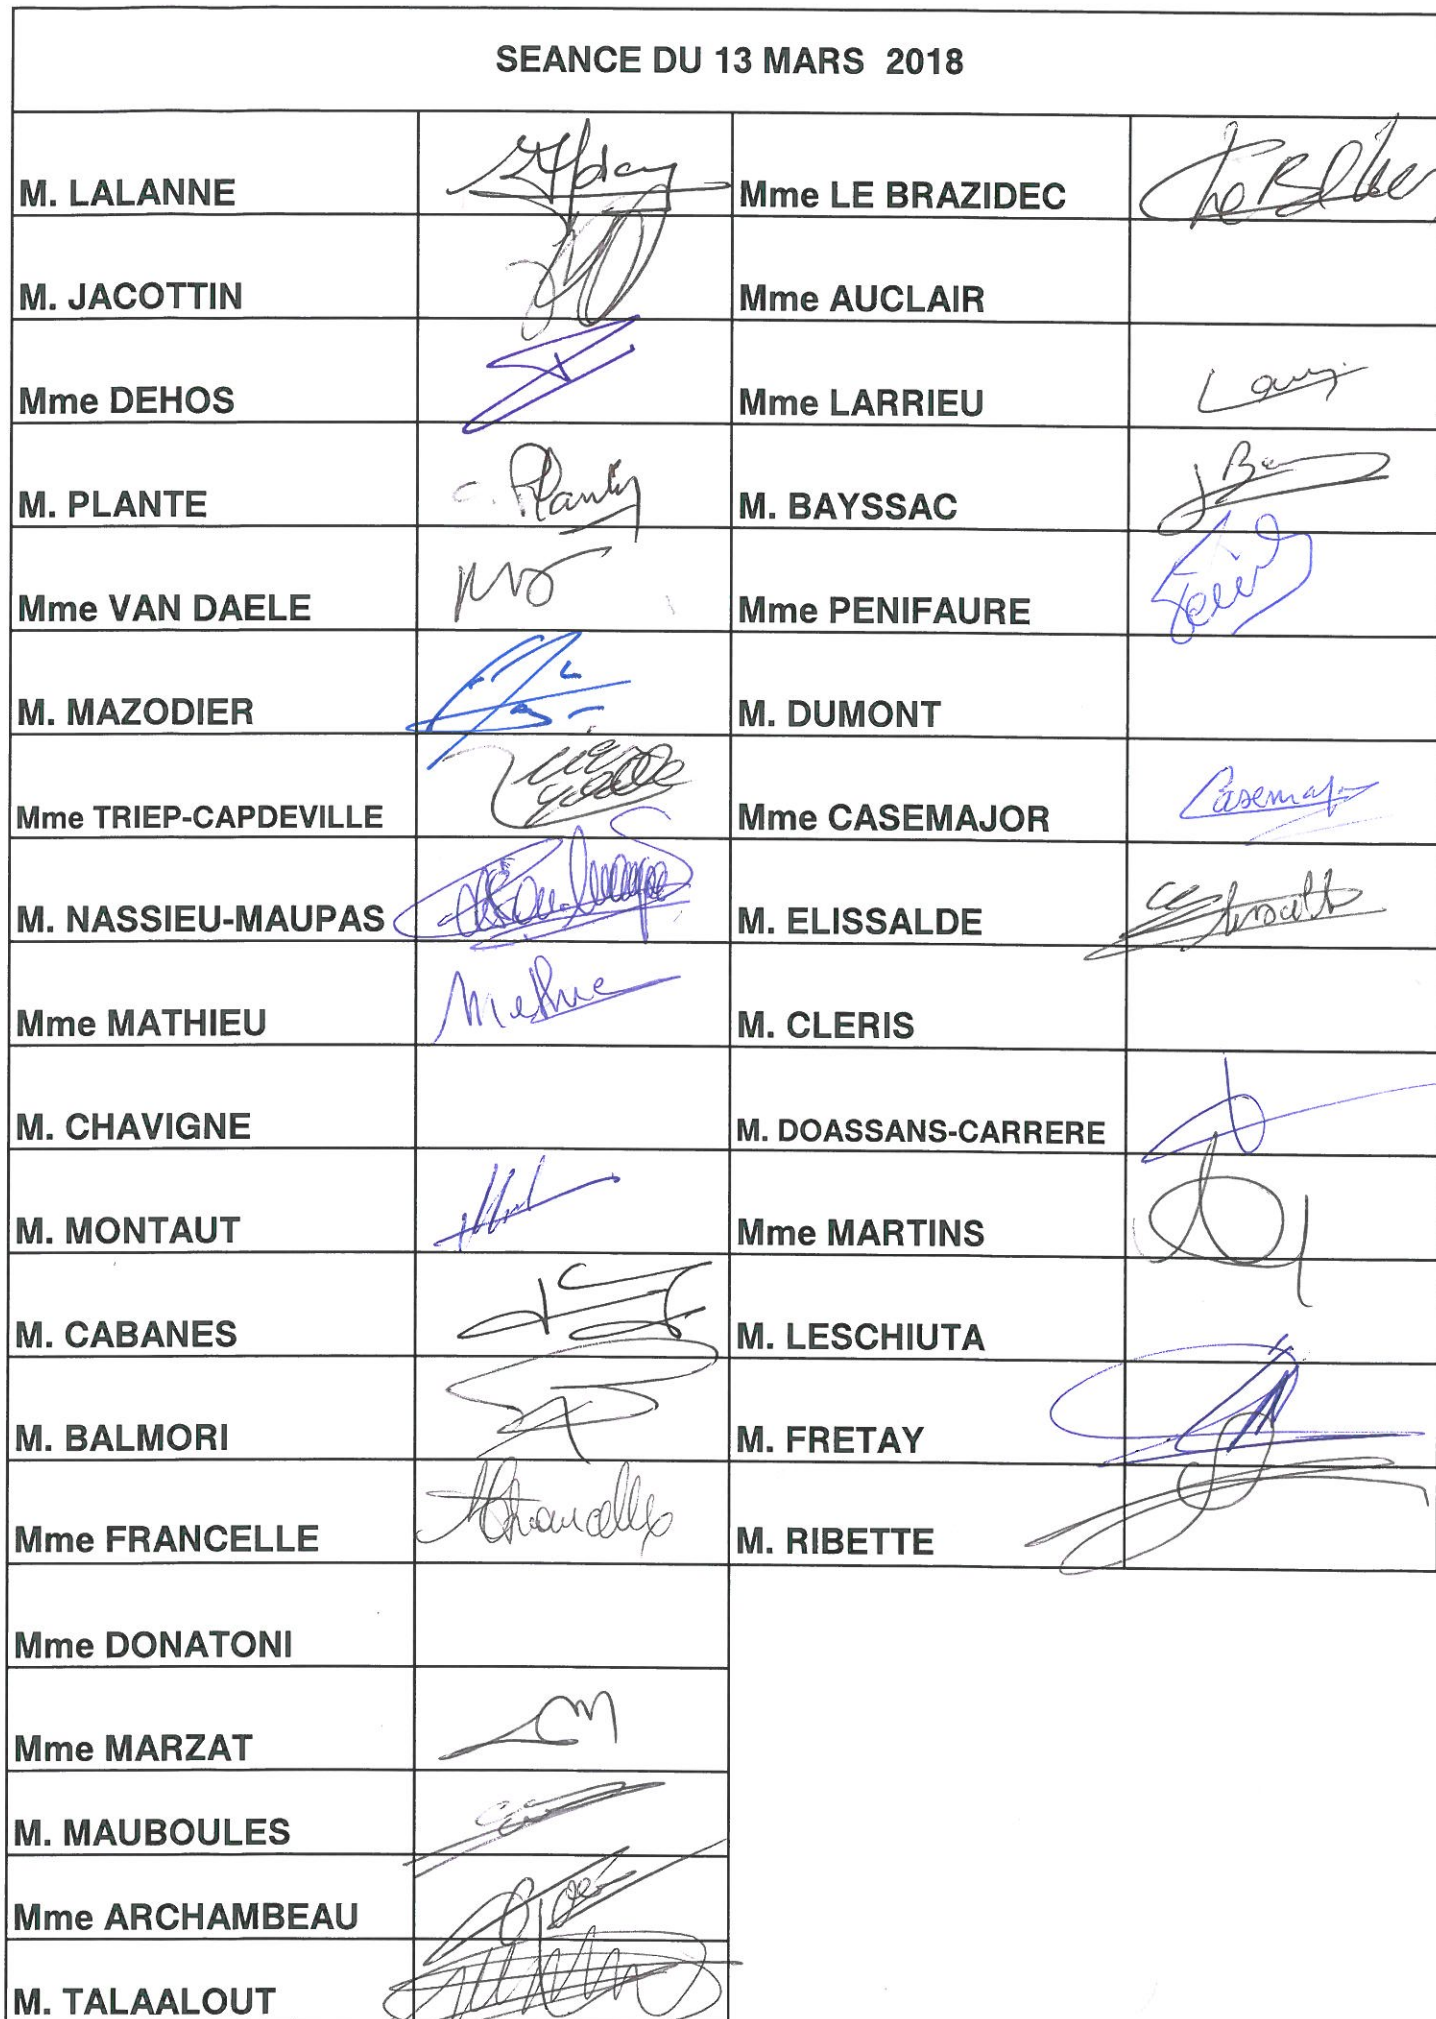 SEANCE DU 13 MARS 2018
M. LALANNE
Mme LE BRAZIDEC
M. JACOTTIN
Mme AUCLAIR
Mme DEHOS
Mme LARRIEU
M. PLANTE
M. BAYSSAC
Mme VAN DAELE
Mme PENIFAURE
M. MAZODIER
M. DUMONT
Mme TRIEP-CAPDEVILLE
Mme CASEMAJOR
M. NASSIEU-MAUPAS
M. ELISSALDE
Mme MATHIEU
M. CLERIS
M. CHAVIGNE
M. DOASSANS-CARRERE
M. MONTAUT
Mme MARTINS
M. CABANES
M. LESCHIUTA
M. BALMORI
M. FRETAY
Mme FRANCELLE
M. RIBETTE
Mme DONATONI
Mme MARZAT
M. MAUBOULES
Mme ARCHAMBEAU
M. TALAALOUT